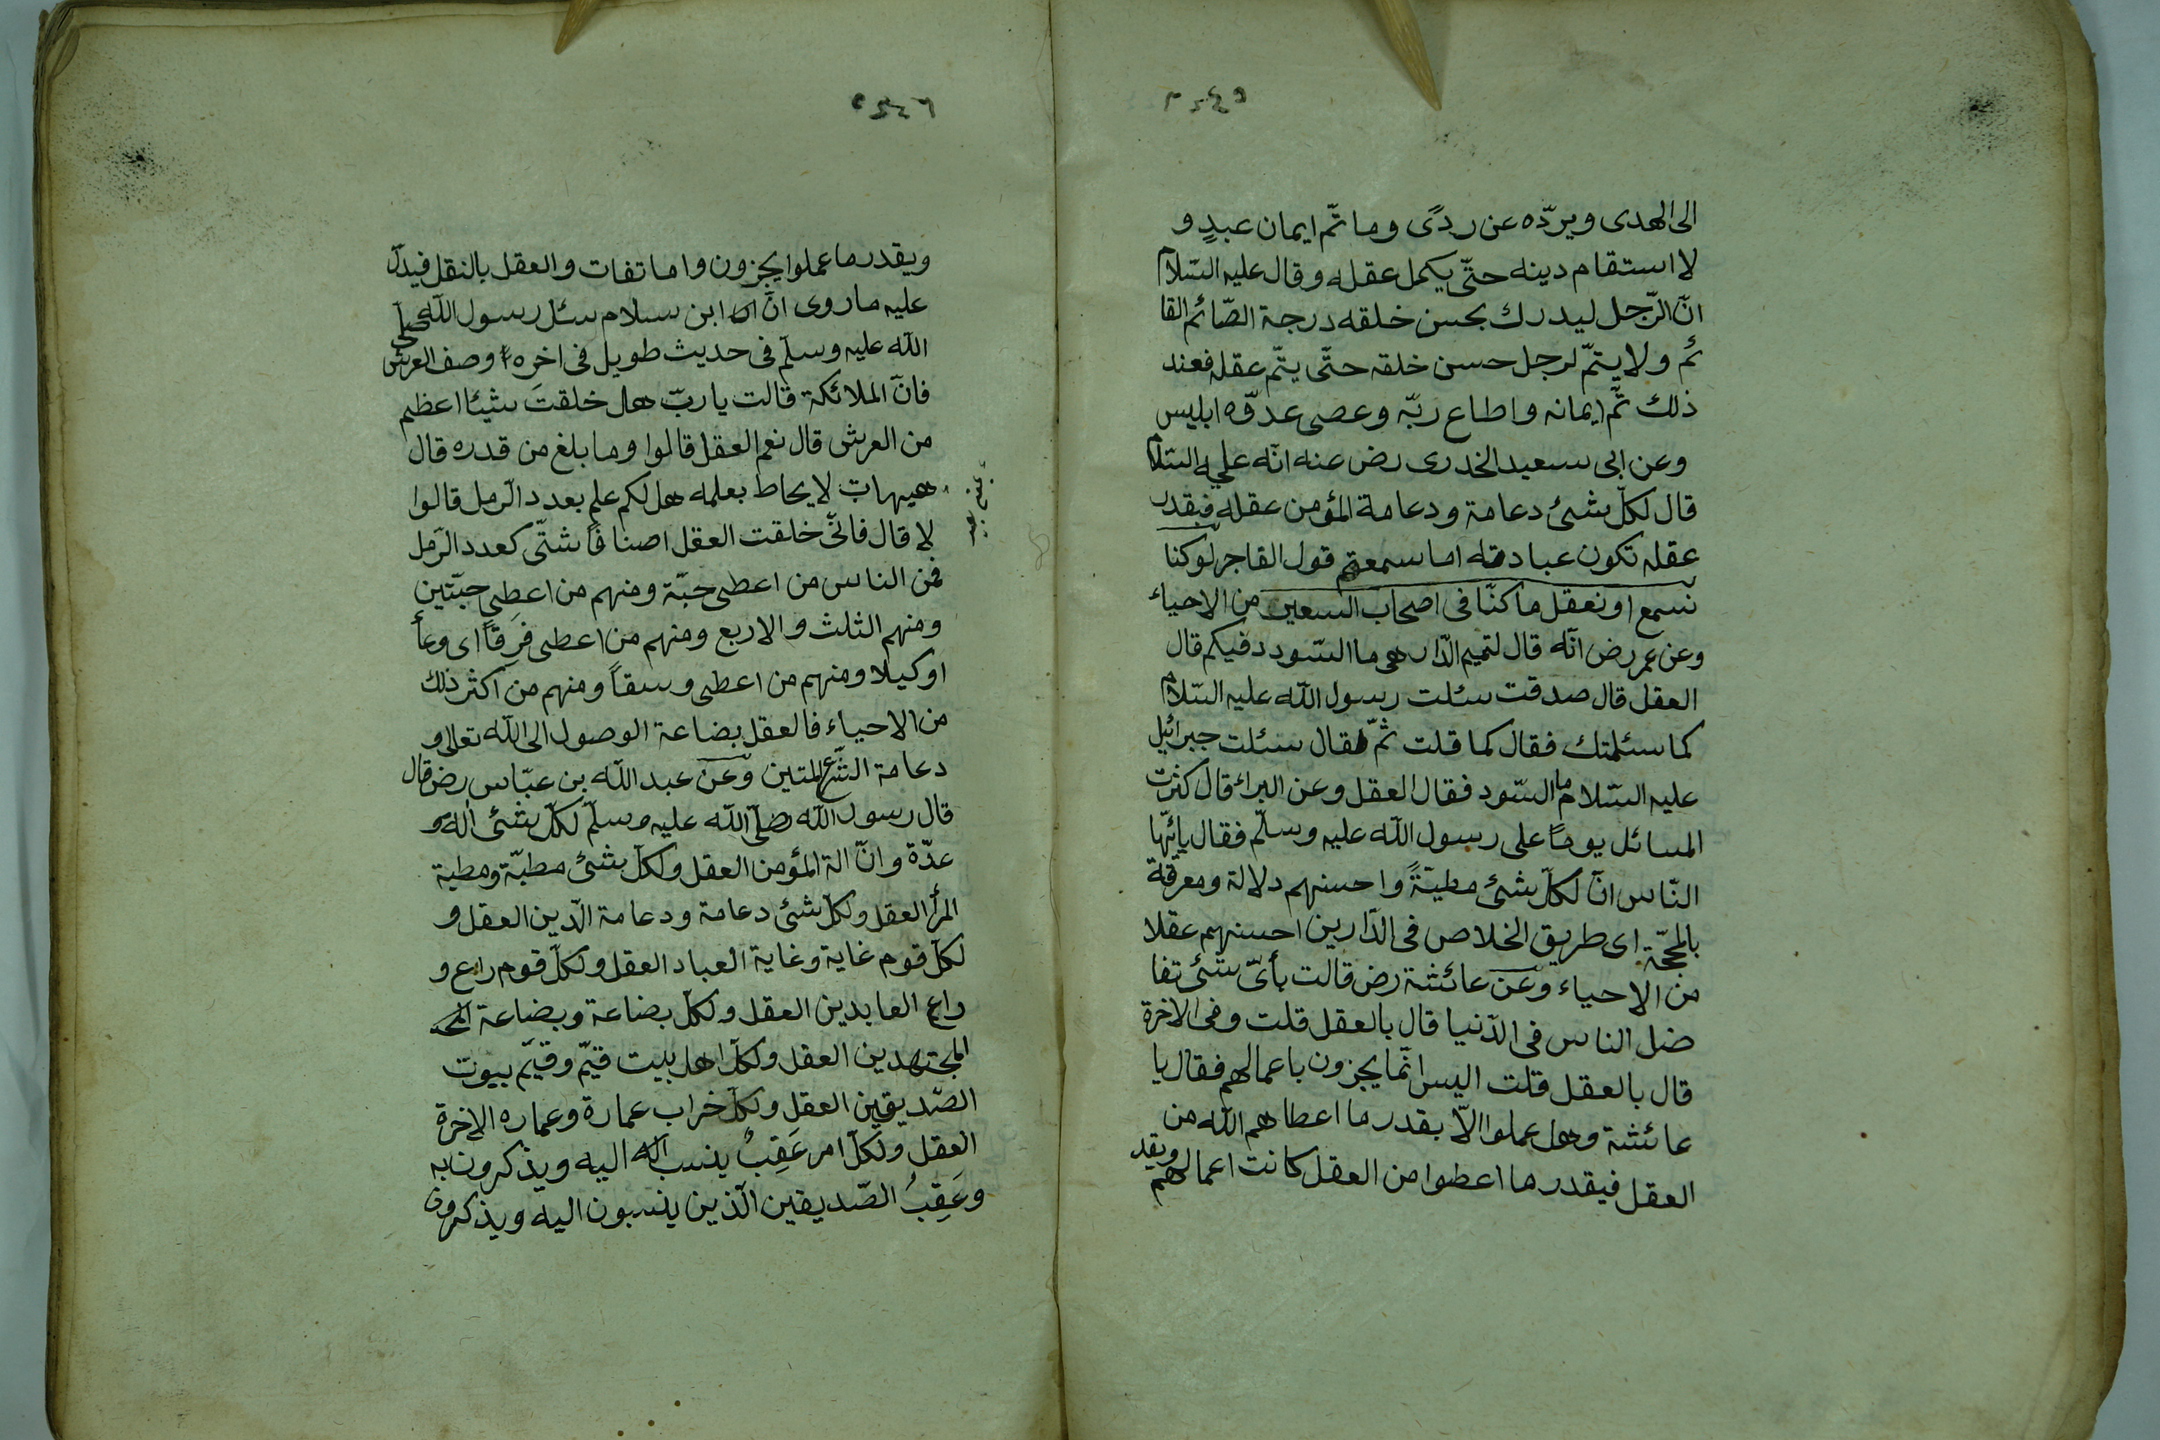 الى الهدى ويردّه عن ردًى وما تمّ ايمان عبدٍ و
لا استقام دينه حتّى يكمل عقله وقال عليه السّلام
انّ الرّجل ليدرك بحسن خلقه درجة الصّائم القا
ئم ولا يتمّ لرجل حسن خلقه حتّى يتّم عقله فعند
ذلك تمّ ايمانه واطاع ربّه وعصى عدوّه ابليس
وعن ابى سعيد الخدرى رض عنه انّه عليه السّلام
قال لكلّ شئ دعامة ودعامة المؤمن عقله فبقدر
عقله تكون عبادته اما سمعتم قول الفاجر لو كنا
نسمع او نعقل ما كنّا فى اصحاب السعير من الاحياء
وعن عمر رض انّه قال لتميم الدّارى ما السّودد فيكم قال
العقل قال صدقت سئلت رسول الله عليه السّلام
كما سئلتك فقال كما قلت ثمّ قال سئلت جبرائيل
عليه السّلام ما السّودد فقال العقل وعن البراء قال كثرت
المسائل يومًا على رسول الله عليه وسلّم فقال يا ايّها
النّاس انّ لكلّ شئ مطيّةً واحسنهم دلالة ومعرفة
بالمحجّة اى طريق الخلاص فى الدّارين احسنهم عقلا
من الاحياء وعن عائشة رض قالت بأىّ شئ تفا
ضل الناس فى الدّنيا قال بالعقل قلت وفى الاخرة
قال بالعقل قلت اليس انّما يجزون باعمالهم فقال يا
عائشة وهل عملوا الّا بقدر ما اعطاهم الله من
العقل فبقدر ما اعطوا من العقل كانت اعمالهم
وبقد
وبقدر ما عملوا يجزون واما تفات والعقل بالنقل فيدلّ
عليه ما روى انّ ابن سلام سئل رسول الله صلّى
الله عليه وسلّم فى حديث طويل فى اخره وصف العرش
فانّ الملائكة قالت يا ربّ هل خلقتَ شيئا اعظم
من العرش قال نعم العقل قالوا وما بلغ من قدره قال
هيهات لا يحاط بعلمه هل لكم علم بعدد الرّمل قالوا
لا قال فانّى خلقت العقل اصنافًا شتّى كعدد الرّمل
فمن الناس من اعطى حبّة ومنهم من اعطى حبّتين
ومنهم الثلث والاربع ومنهم من اعطى فرقًا اى وعأ
او كيلا ومنهم من اعطى وسقًا ومنهم من اكثر ذلك
من الاحياء فالعقل بضاعة الوصول الى الله تعالى و
دعامة الشّرع المتين وعن عبد الله بن عبّاس رض قال
قال رسول الله صلّى الله عليه وسلّم لكلّ شئ الة و
عدّة وانّ الة المؤمن العقل ولكلّ شئ مطيّة ومطية
المرأ العقل ولكلّ شئ دعامة ودعامة الدّين العقل و
لكلّ قوم غاية وغاية العباد العقل ولكلّ قوم راع و
راع العابدين العقل ولكلّ بضاعة وبضاعة
المجتهدين العقل ولكلّ اهل بيت قيّم وقيّم بيوت
الصّديقين العقل ولكلّ خراب عمارة وعماره الاخرة
العقل ولكلّ امر عَقِبٌ ينسب اليه ويذكرون به
وعَقِبُ الصّديقين الّذين ينسبون اليه ويذكرون